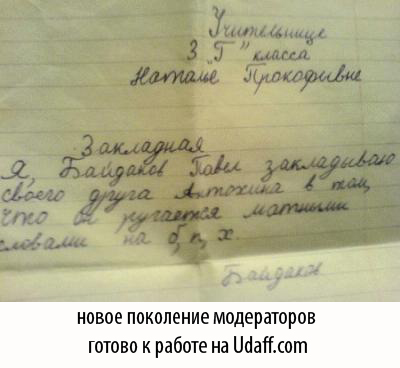 Учительнице
3 "Г" класса
Наталье Прокофивне
Закладная
Я, Байдаков Павел закладываю
своего друга Антохина в том,
что он ругается матными
словами на б, п, х.
Байдаков
новое поколение модераторов
готово к работе на Udaff.com